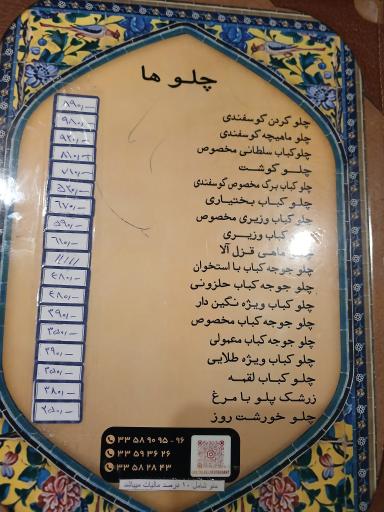 چلو ها
چلو گردن گوسفندی ۸۹۰/-
چلو ماهیچه گوسفندی ۹۸۰/-
چلوکباب سلطانی مخصوص ۹۲۰/-
چلو گوشت ۸۱۰/-
چلو کباب برگ مخصوص گوسفندی ۷۱۰/-
چلو کباب بختیاری ۵۲۰/-
چلو کباب وزیری مخصوص ۶۷۰/-
کباب وزیری ۵۹۰/-
ماهی قزل آلا ۶۱۰/-
چلو جوجه کباب با استخوان
چلو جوجه کباب حلزونی ۴۸۰/-
چلو کباب ویژه نگین دار ۴۸۰/-
چلو جوجه کباب مخصوص ۳۹۰/-
چلو جوجه کباب معمولی ۳۵۰/-
چلو کباب ویژه طلایی ۲۹۰/-
چلو کباب لقمه ۲۵۰/-
زرشک پلو با مرغ ۳۸۰/-
چلو خورشت روز ۲۵۰/-
۳۳ ۵۸ ۹۰ ۹۵ - ۹۶
۳۳ ۵۹ ۳۶ ۲۶
۳۳ ۵۸ ۲۸ ۴۳
منو شامل ۱۰ درصد مالیات میباشد